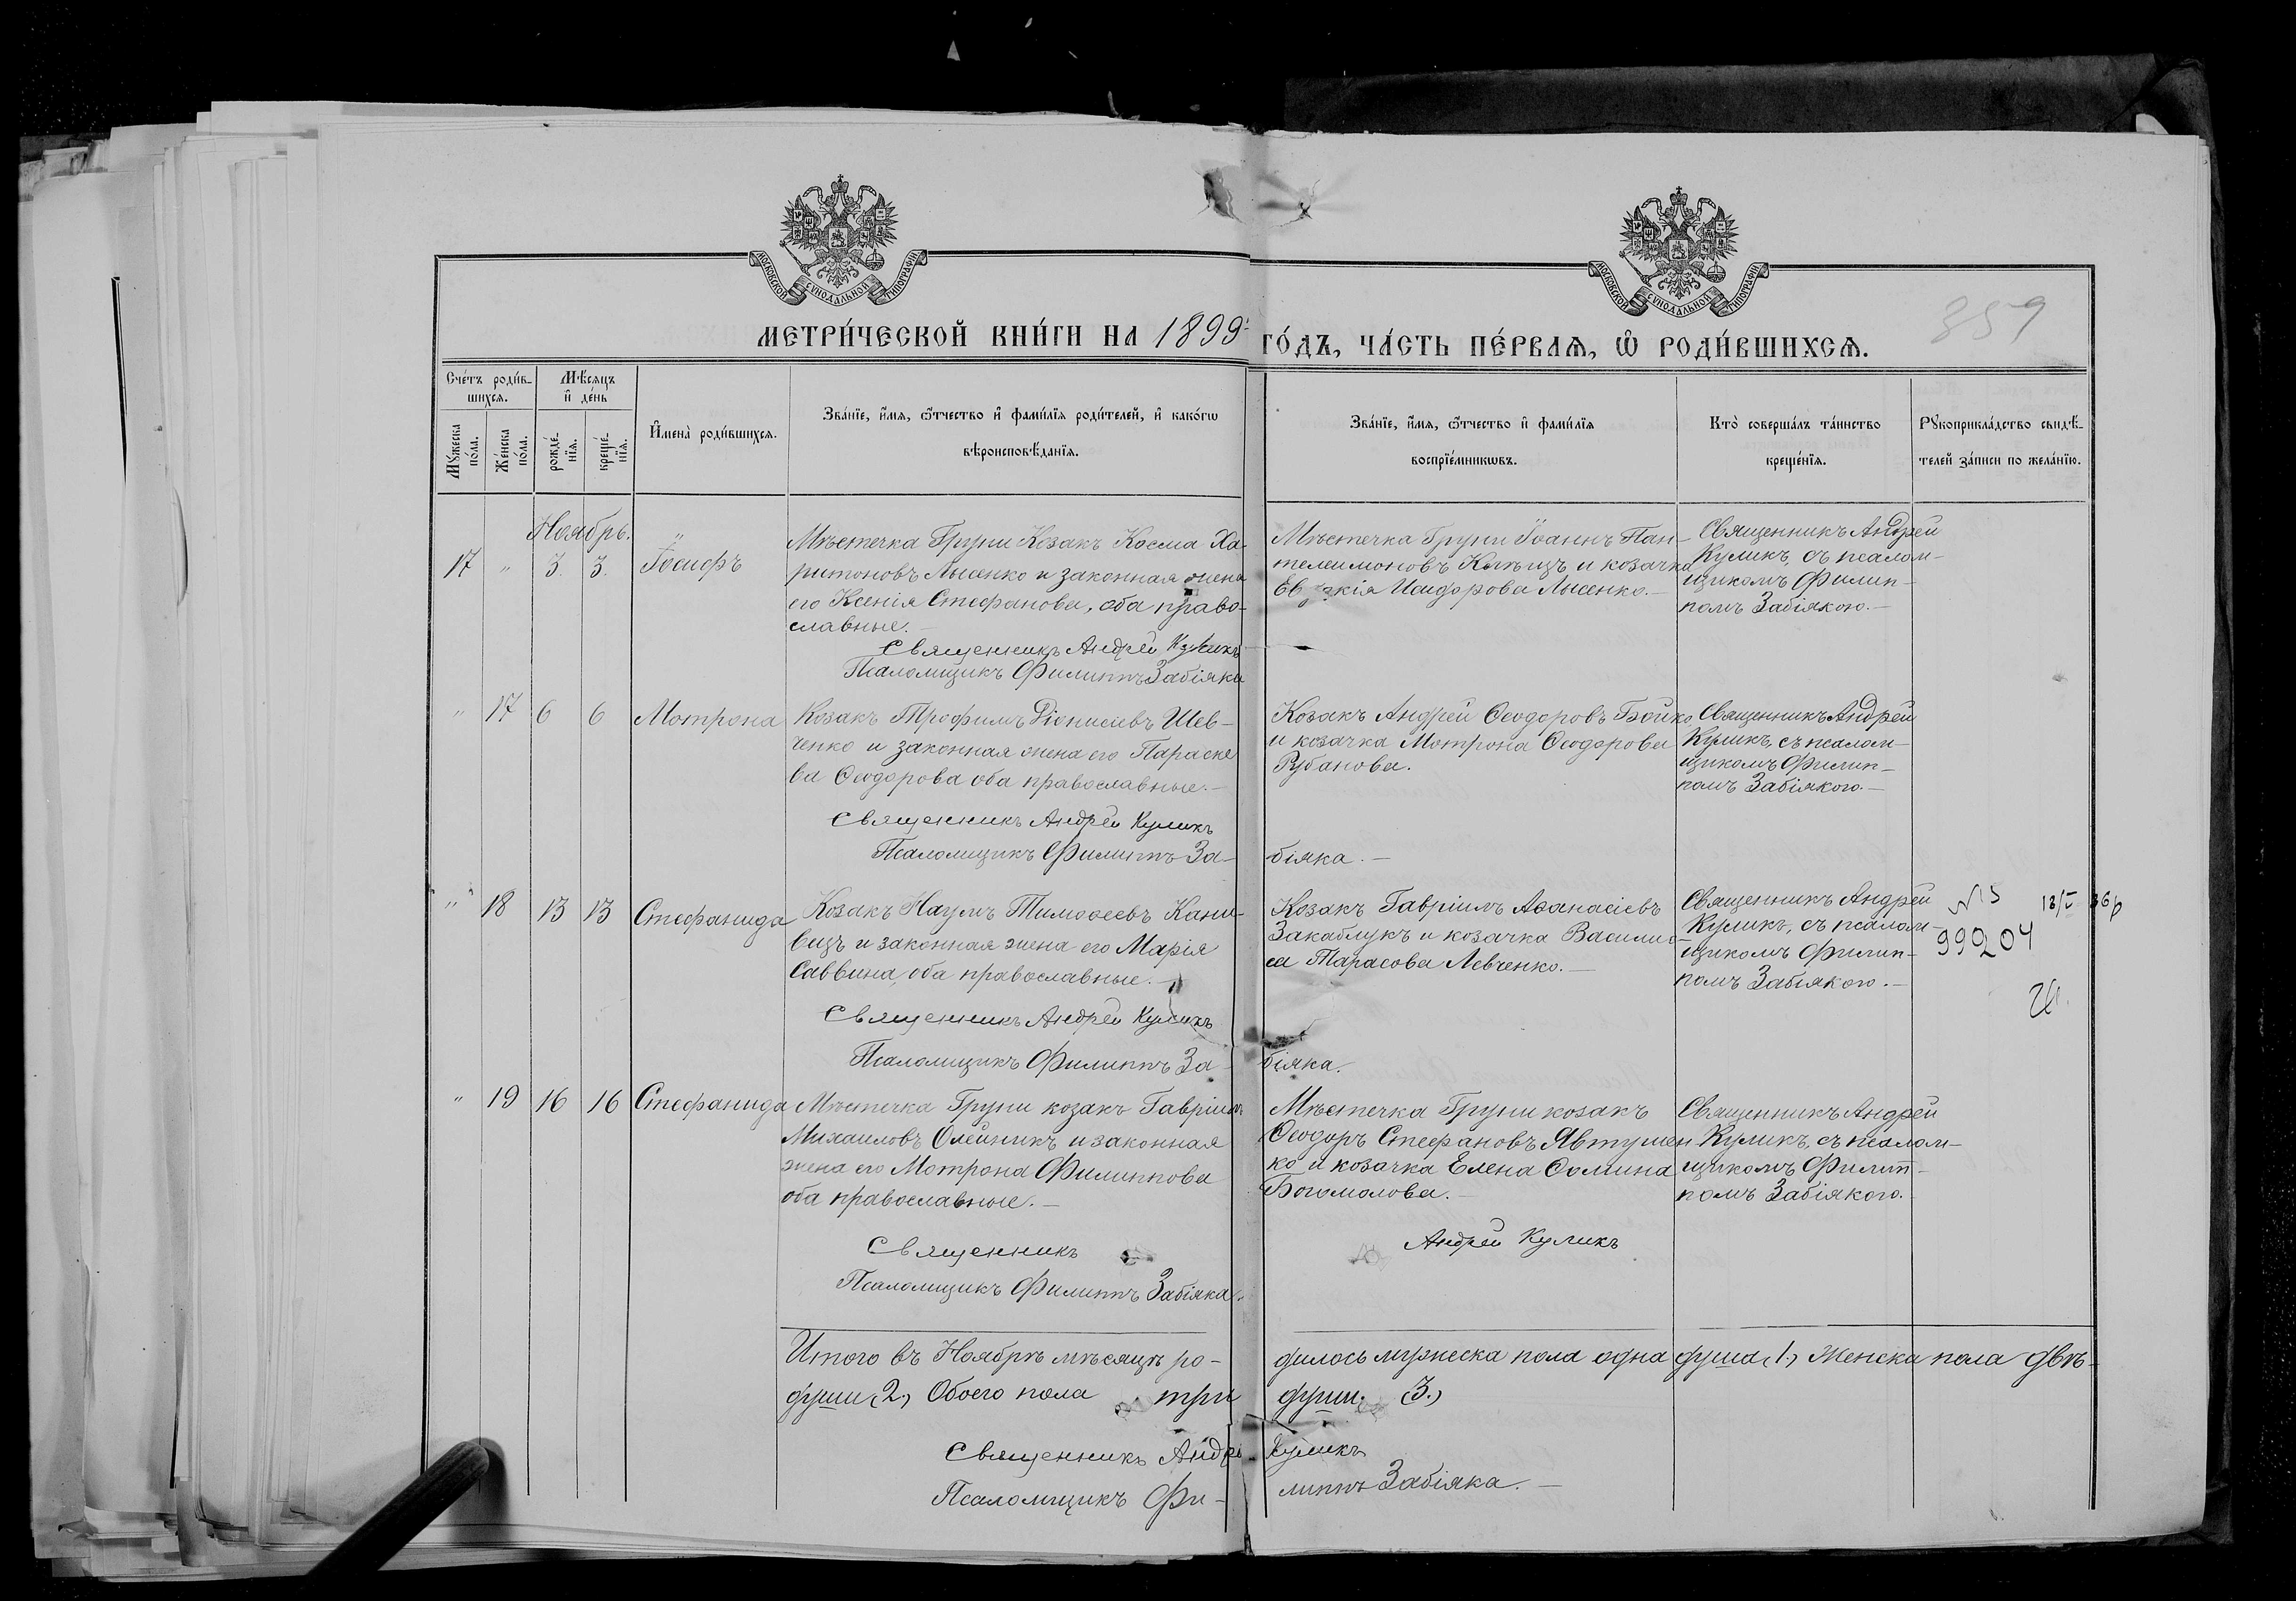 МОСКОВСКОЙ СѴНОДАЛЬНОЙ ТИПОГРАФІИ
МОСКОВСКОЙ СѴНОДАЛЬНОЙ ТИПОГРАФІИ
359
МЕТРИ́ЧЕСКОЙ КНИ́ГИ НА 1899 ГО́ДЪ, ЧА́СТЬ ПЕ́РВАѦ, Ѡ҆ РОДИ́ВШИХСѦ.
Счéтъ роди́в-
шихсѧ.
Мꙋ́жеска
по́ла.
Жéнска
по́ла.
Мѣ́сѧцъ
и҆ дéнь
рождé-
нїѧ.
крещé-
нїѧ.
И҆мена̀ роди́вшихсѧ.
Зва́нїе, и҆́мѧ, ѻ҆́тчество и҆ фами́лїѧ роди́телей, и҆ како́гѡ
вѣроисповѣ́данїѧ.
Зва́нїе, и҆́мѧ, ѻ҆́тчество и҆ фами́лїѧ
воспрїе́мникѡвъ.
Кто̀ соверша́лъ та́инство
крещéнїѧ.
Рꙋкоприкла́дство свидѣ́-
телей за́писи по жела́нїю.
Ноябрь.
17 " 3. 3. Іосифъ
Мѣстечка Груни Козакъ Косма Ха-
ритоновъ Лысенко и законная жена
его Ксенія Стефанова, оба право-
славные.
Священникъ Андрей Куликъ
Псаломщикъ Филиппъ Забіяка
Мѣстечка Груни Іоаннъ Пан-
телеимоновъ и козачка
Исидорова Лысенко.—
Священникъ Андрей
Куликъ, съ псалом-
щикомъ Филип-
помъ Забіякою.—
" 17 6 6 Мотрона
Козакъ Трофимъ Діонисіевъ Шев-
ченко и законная жена его Параске
ва Ѳеодорова оба православные.—
Священникъ Андрей Куликъ
Псаломщикъ Филиппъ За-
біяка.—
Козакъ Андрей Ѳеодоровъ Бойко
и козачка Мотрона Ѳеодорова
Рубанова.
Священникъ Андрей
Куликъ, съ псалом-
щикомъ Филип-
помъ Забіякою.—
" 18 13 13 Стефанида
Козакъ Наумъ Тимоѳеевъ Кани-
вецъ и законная жена его Марія
Саввина, оба православные.—
Священникъ Андрей Куликъ
Псаломщикъ Филиппъ За-
біяка.
Козакъ Гавріилъ Аѳанасіевъ
Закаблукъ и козачка Василис-
са Тарасова Левченко.—
Священникъ Андрей
Куликъ, съ псалом-
щикомъ Филип-
помъ Забіякою.—
99204
" 19 16 16 Стефанида
Мѣстечка Груни козакъ Гавріилъ
Михаиловъ Олейникъ и законная
жена его Мотрона Филиппова
оба православные.—
Священникъ
Андрей Куликъ
Псаломщикъ Филиппъ Забіяка.
Мѣстечка Груни козакъ
Ѳеодоръ Стефановъ Явтушен
ко и козачка Елена Ѳомина
Богомолова.—
Священникъ Андрей
Куликъ, съ псалом-
щикомъ Филип-
помъ Забіякою.
Итого въ Ноябрѣ мѣсяцѣ ро-
дилось мужеска пола одна душа (1.) Женска пола двѣ
души (2.) Обоего пола три души (3.)
Священникъ Андрей Куликъ
Псаломщикъ Фи-
липпъ Забіяка.—